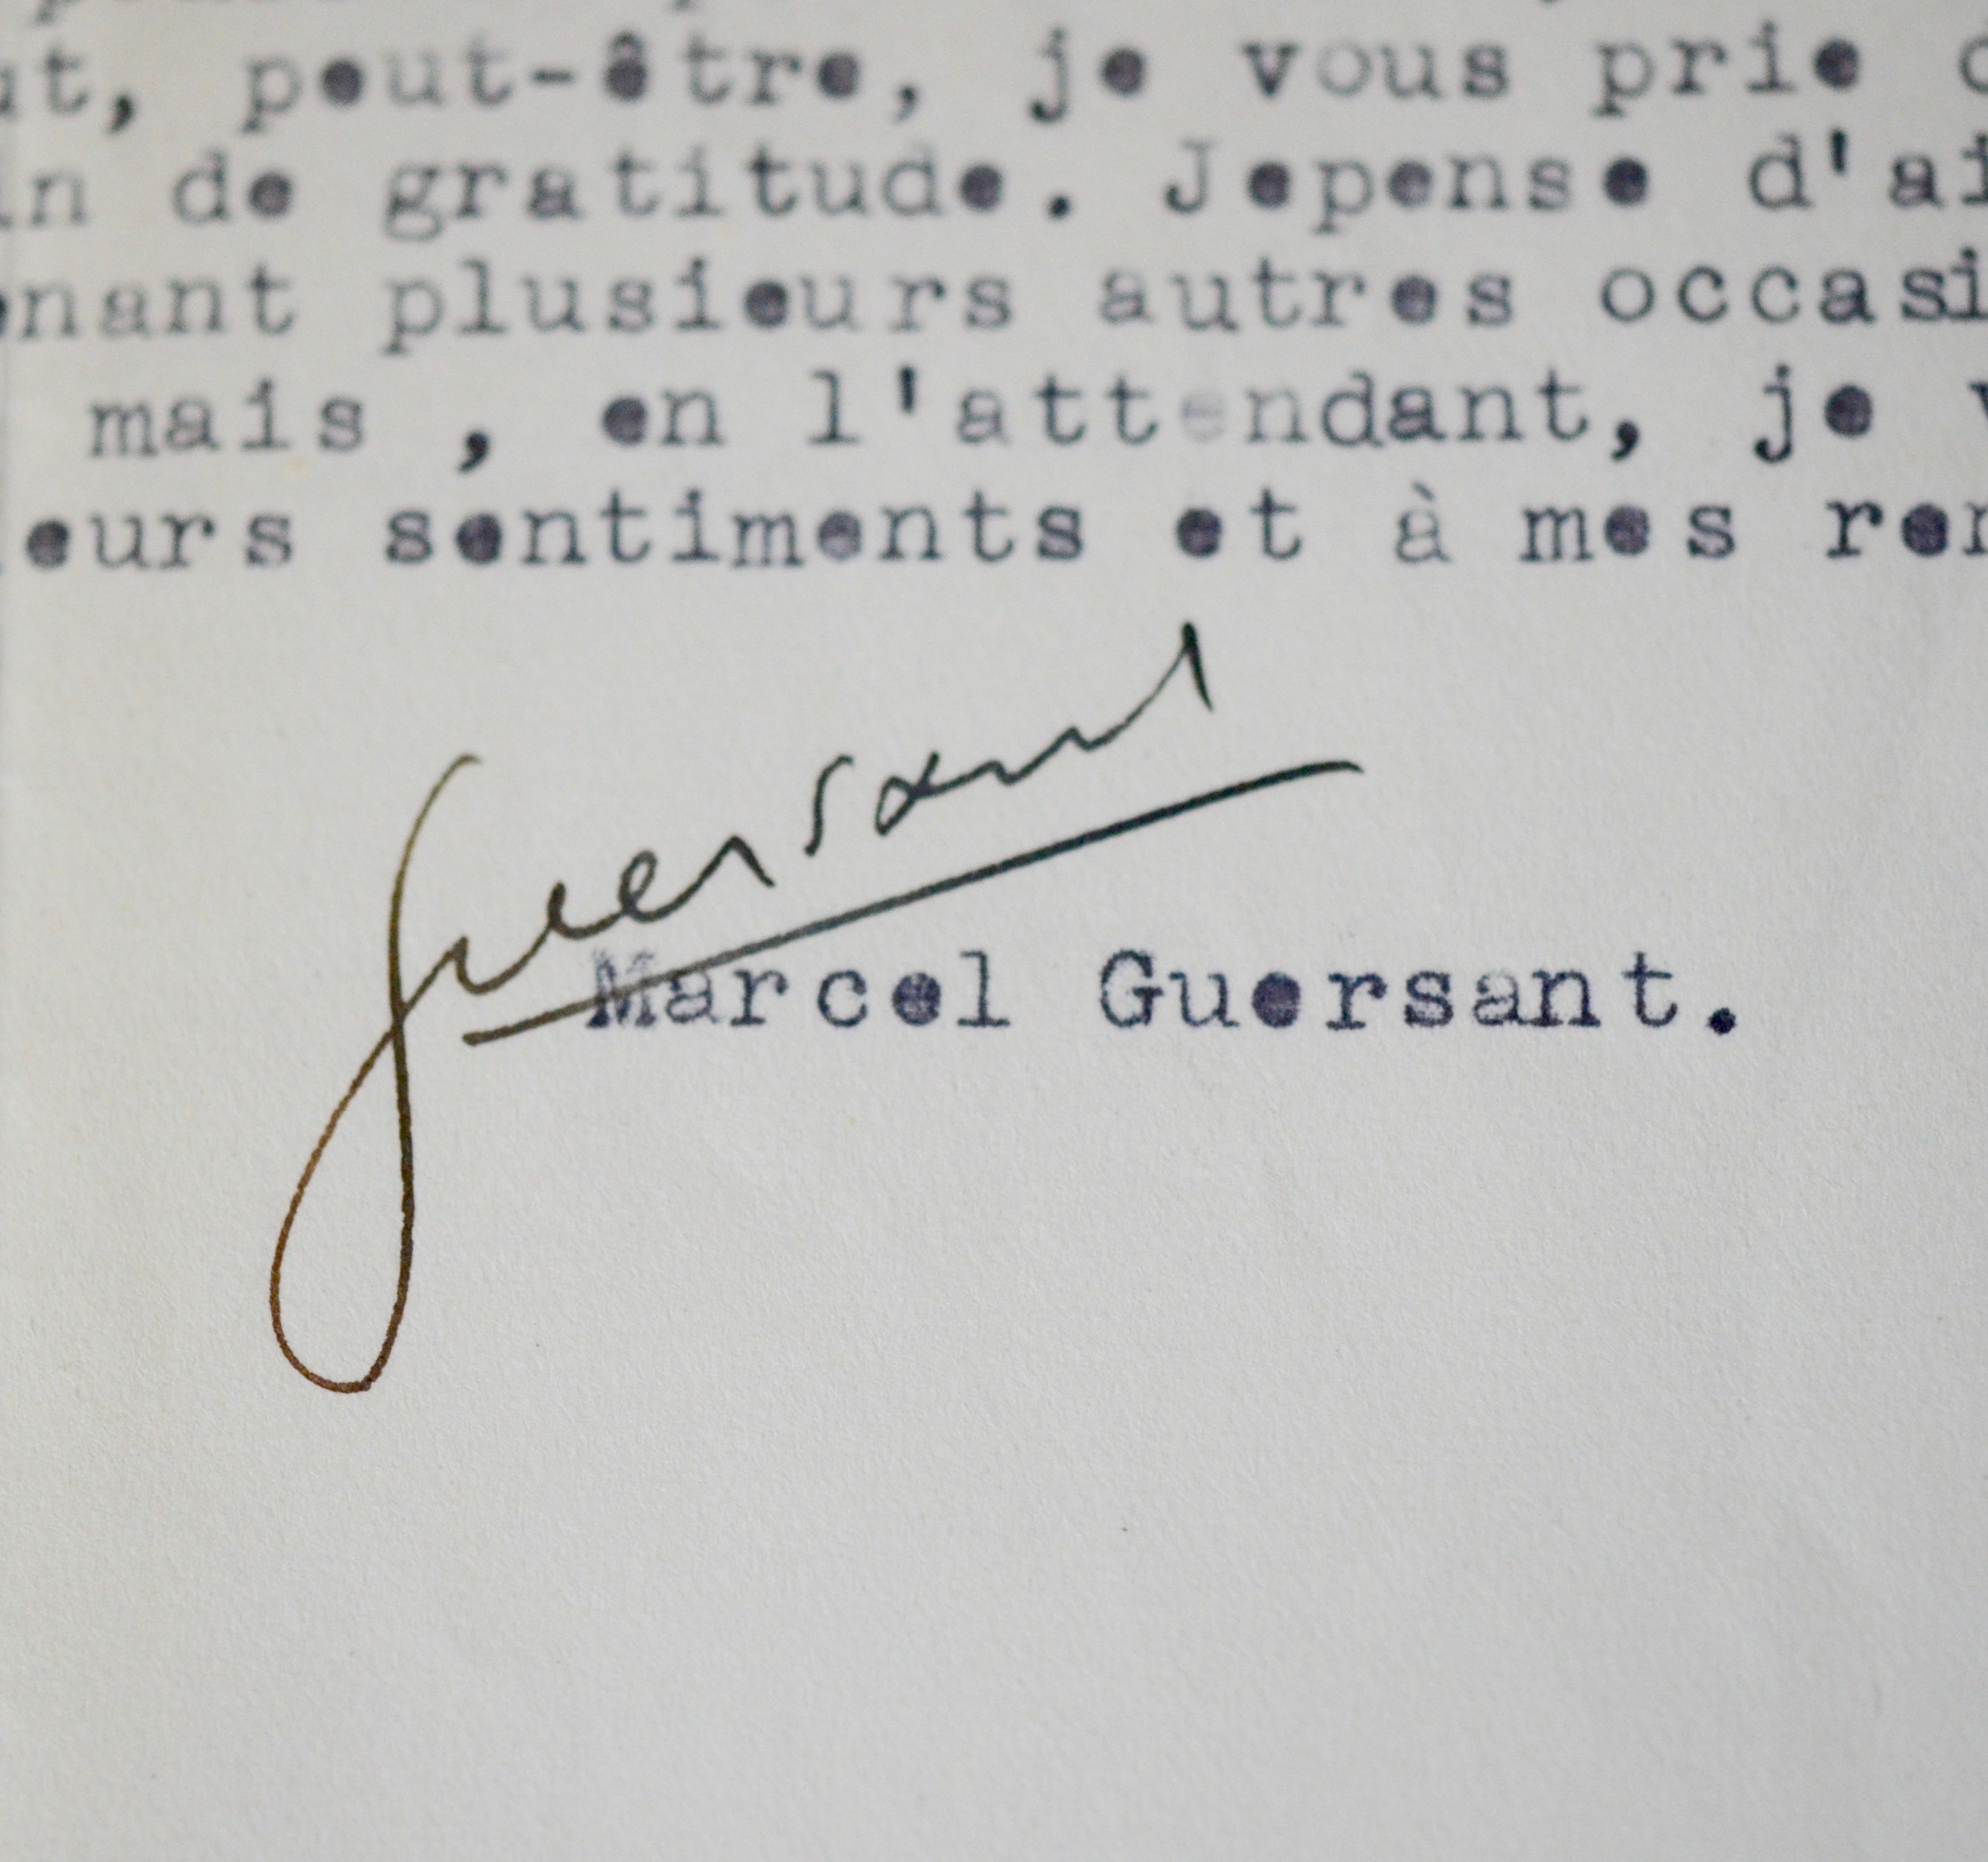 ut, peut-être, je vous prie
in de gratitude. Jepense d'ai
enant plusieurs autres occasi
mais , en l'attendant, je v
eurs sentiments et à mes rem
Guersant
Marcel Guersant.